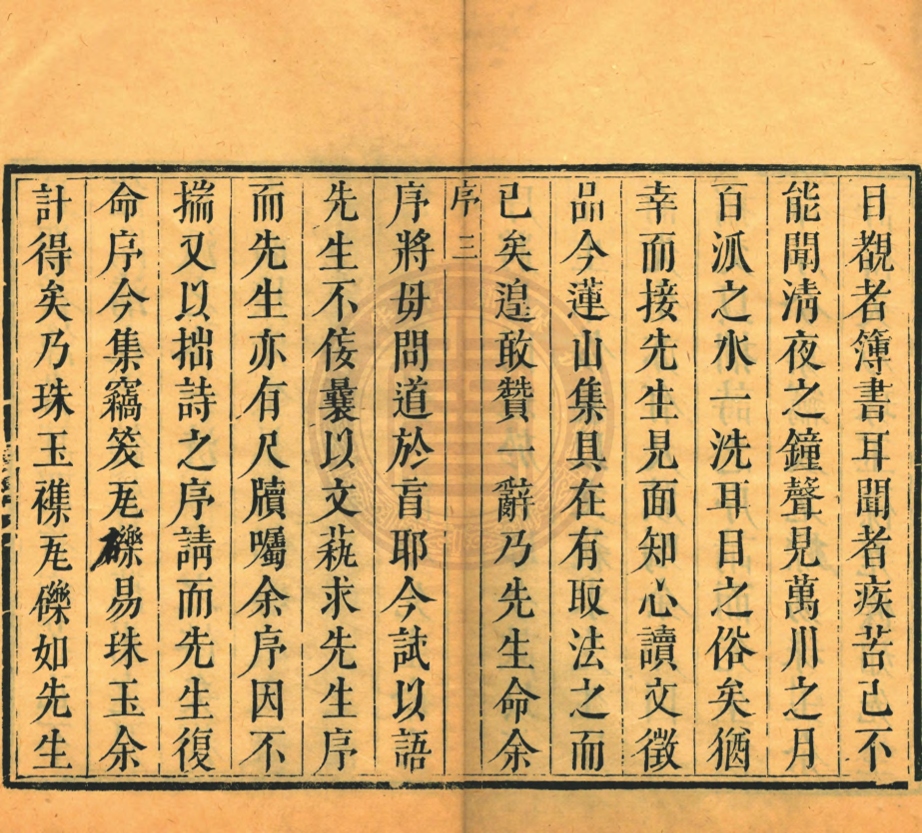 目覩者簿書耳聞者疾苦已不
能聞清夜之鐘聲見萬川之月
百泒之水一洗耳目之俗矣猶
幸而接先生見面知心讀文徵
品今蓮山集具在有取法之而
已矣遑敢贊一辭乃先生命余
序三
序將毋問道於盲耶今試以語
先生不佞曩以文蓺求先生序
而先生亦有尺牘囑余序因不
揣又以拙詩之序請而先生復
命序今集竊笑瓦礫易珠玉余
計得矣乃珠玉襍瓦礫如先生